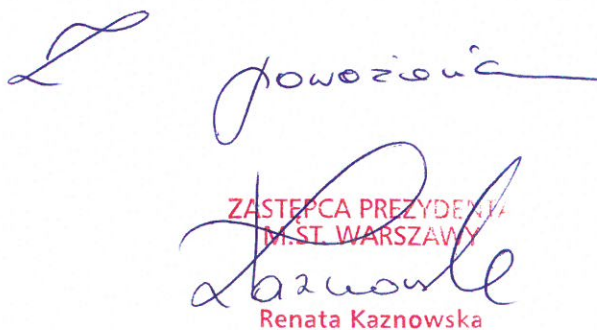 Z poważaniem
ZASTĘPCA PREZYDENTA
M.ST. WARSZAWY
Kaznowska
Renata Kaznowska